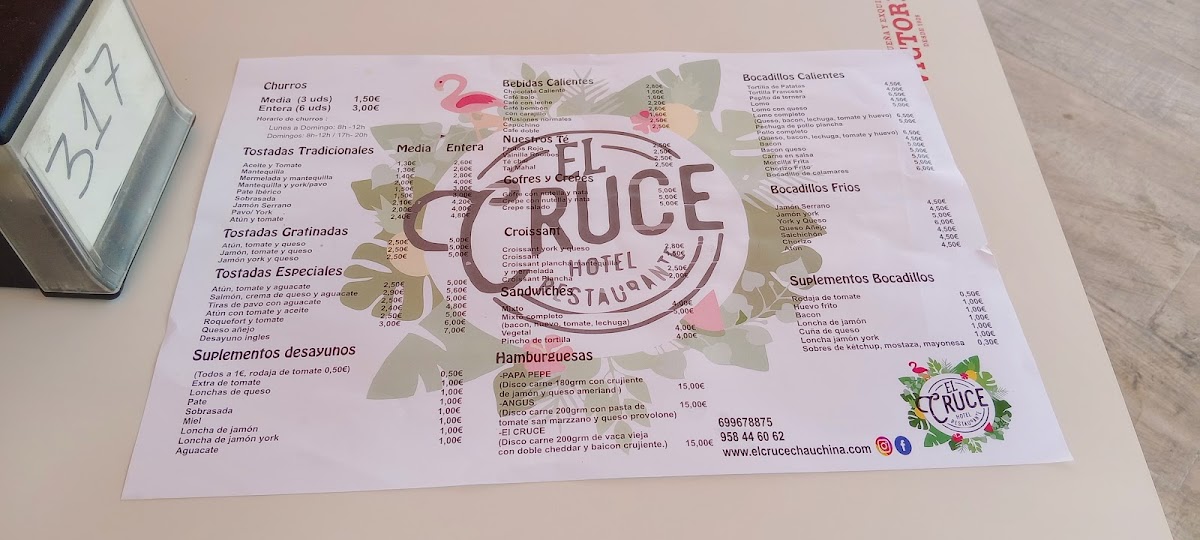 517
Churros
Media (3 uds) 1,50€
Entera (6 uds) 3,00€
Horario de churros :
Lunes a Domingo: 8h -12h
Domingos: 8h-12h / 17h- 20h
Tostadas Tradicionales Media Entera
Aceite y Tomate 1,30€ 2,60€
Mantequilla
Mermelada y mantequilla
Mantequilla y york/pavo
Pate Ibérico
Sobrasada
Jamón Serrano
Pavo/ York
Atún y tomate 2,40€ 4,80€
Tostadas Gratinadas
Atún, tomate y queso 2,50€ 5,00€
Jamón, tomate y queso 2,50€ 5,00€
Jamón york y queso 2,50€ 5,00€
Tostadas Especiales
Atún, tomate y aguacate 2,50€ 5,00€
Salmón, crema de queso y aguacate 2,90€ 5,60€
Tiras de pavo con aguacate 2,50€ 5,00€
Atún con tomate y aceite 2,40€ 4,80€
Roquefort y tomate 2,50€ 5,00€
Queso añejo 3,00€ 6,00€
Desayuno ingles 7,00€
Suplementos desayunos
(Todos a 1€, rodaja de tomate 0,50€)
Extra de tomate 0,50€
Lonchas de queso 1,00€
Pate 1,00€
Sobrasada 1,00€
Miel 1,00€
Loncha de jamón 1,00€
Loncha de jamón york 1,00€
Aguacate 1,00€
Bebidas Calientes
Chocolate Caliento
Café solo
Café con leche
Café bombon
con carajillo
Infusiones normales
Capuchino
Cafe doble
Nuestros Té
Frutos Rojo
Vainilla Rooibos
Té chai
Taj Mahal
Gofres y Crepes
Gofre con nutella y nata 5,00€
Crepe con nutella y nata 5,00€
Crepe salado 5,00€
Croissant
Croissant york y queso 2,60€
Croissant
Croissant plancha mantequilla
y mermelada 2,50€
Croissant Plancha 2,00€
Sandwiches
Mixto 4,00€
Mixto completo 5,00€
(bacon, huevo, tomate, lechuga)
Vegetal 4,00€
Pincho de tortilla 4,00€
Hamburguesas
-PAPA PEPE
(Disco carne 180grm con crujiente 15,00€
de jamón y queso amerland )
-ANGUS
(Disco carne 200grm con pasta de 15,00€
tomate san marzzano y queso provolone)
-El CRUCE
(Disco carne 200grm de vaca vieja
con doble cheddar y baicon crujiente.) 15,00€
EL
CRUCE
HOTEL
RESTAURANTE
Bocadillos Calientes
Tortilla de Patatas 4,50€
Tortilla Francesa
Pepito de ternera
Lomo
Lomo con queso
Lomo completo
(Queso, bacon, lechuga, tomate y huevo) 6,50€
Pechuga de pollo plancha
Pollo completo
(Queso, bacon, lechuga, tomate y huevo) 6,50€
Bacon
Bacon queso
Carne en salsa
Morcilla Frita
Chorizo Frito
Bocadillo de calamares 6,00€
Bocadillos Fríos
Jamón Serrano 4,50€
Jamón york 4,50€
York y Queso 5,00€
Queso Añejo 6,00€
Salchichón 4,50€
Chorizo 4,50€
Atún 4,50€
Suplementos Bocadillos
Rodaja de tomate 0,50€
Huevo frito 1,00€
Bacon 1,00€
Loncha de jamón 1,00€
Cuña de queso 1,00€
Loncha jamón york 1,00€
Sobres de kétchup, mostaza, mayonesa 0,30€
699678875
958 44 60 62
www.elcrucechauchina.com
EL
CRUCE
HOTEL
RESTAURANTE
DESDE